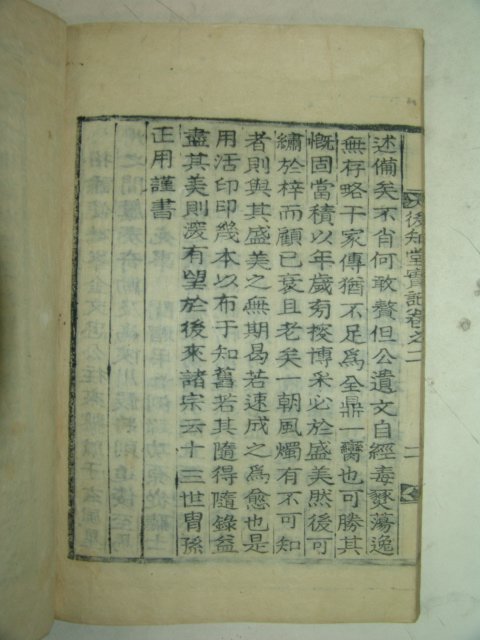 後知堂實記卷之二
二
述備矣不肖何敢贅但公遺文自經毒燹蕩逸
無存略干家傳猶不足爲全鼎一臠也可勝其
慨固當積以年歲旁搜博采必於盛美然後可
繡於梓而顧已衰且老矣一朝風燭有不可知
者則與其盛美之無期曷若速成之爲愈也是
用活印印幾本以布于知舊若其隨得隨錄益
盡其美則深有望於後來諸宗云十三世胄孫
正用謹書